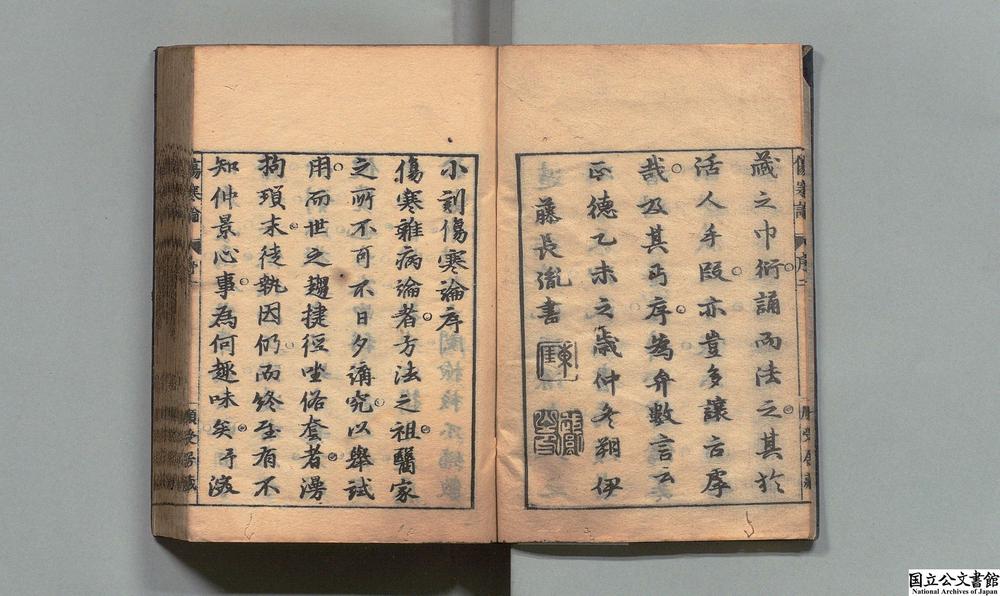 藏之巾衍誦而法之其於
活人手段亦豈多讓古虖
哉及其丐序為弁數言云
正德乙未之歲仲冬朔伊
藤長胤書
傷寒論
序二
小刻傷寒論序
傷寒雜病論者方法之祖醫家
之所不可不日夕講究以舉試
用而世之趨捷徑坐俗套者漫
拘瑣末徒執因仍而終至有不
知仲景心事為何趣味矣予溲
傷寒論
序
國立公文書館
National Archives of Japan